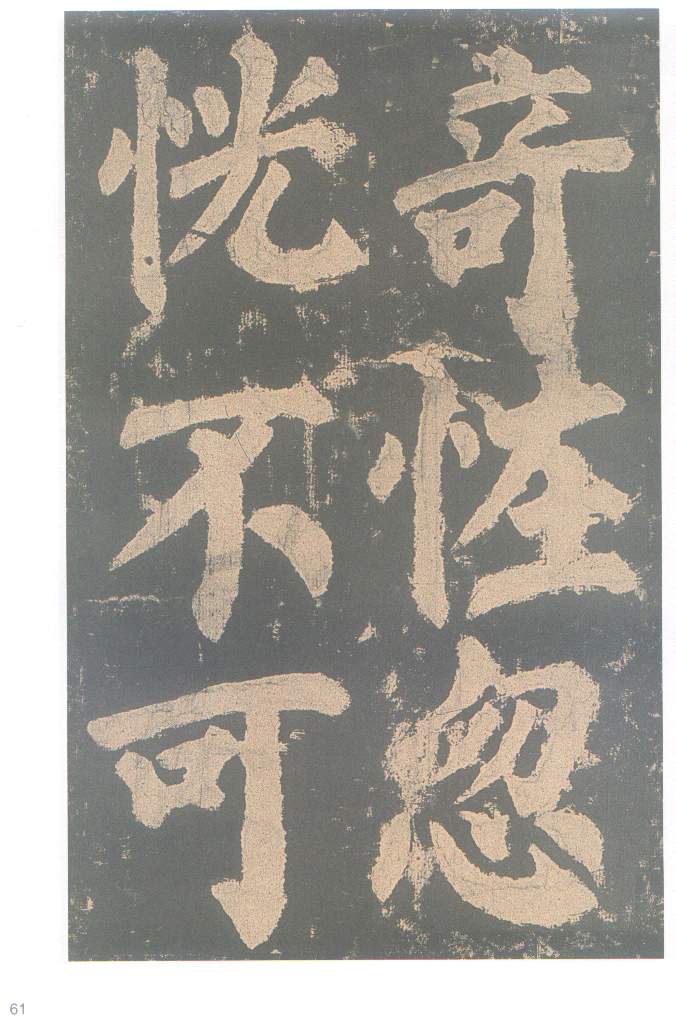 奇怪忽
恍不可
61